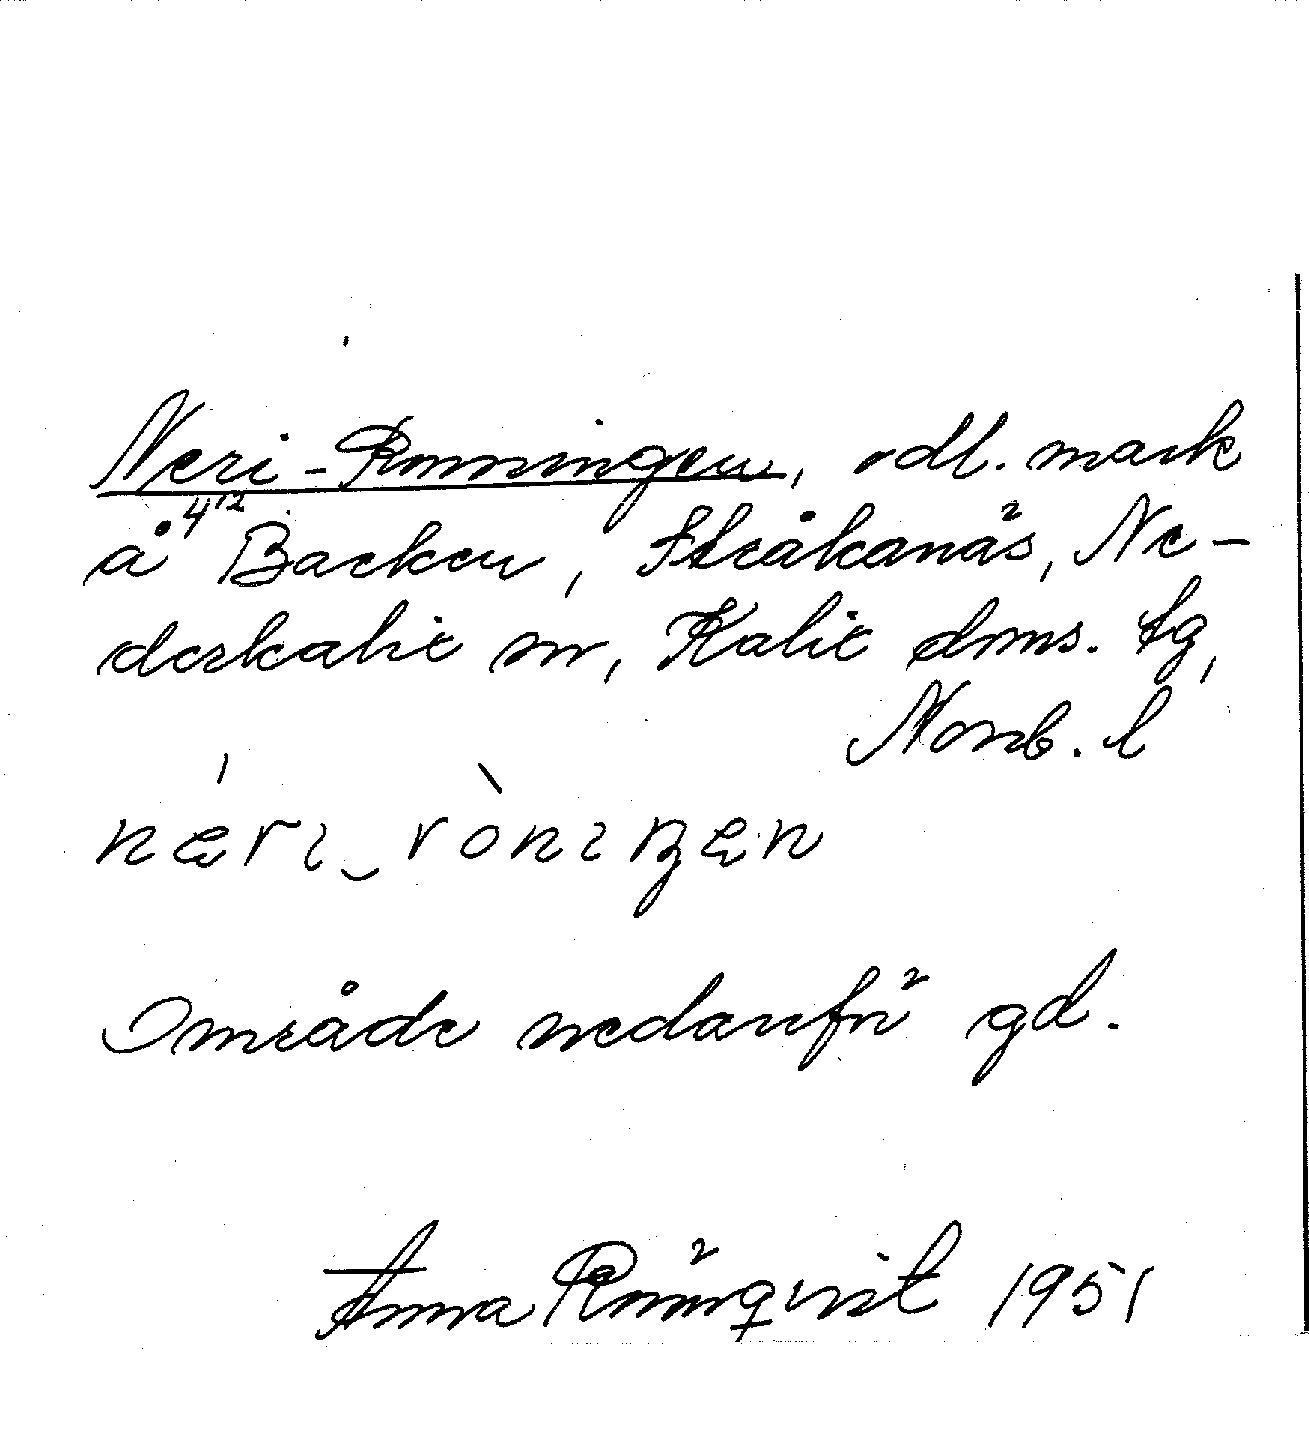 Neri-Ronningen, odl. mark
å 4¹² Backen, Stråkanäs, Ne-
derkalix sn, Kalix doms. tg,
Norrb. l
næri_ròniŋen
Område nedanför gd.
Anna Rönnqvist 1951